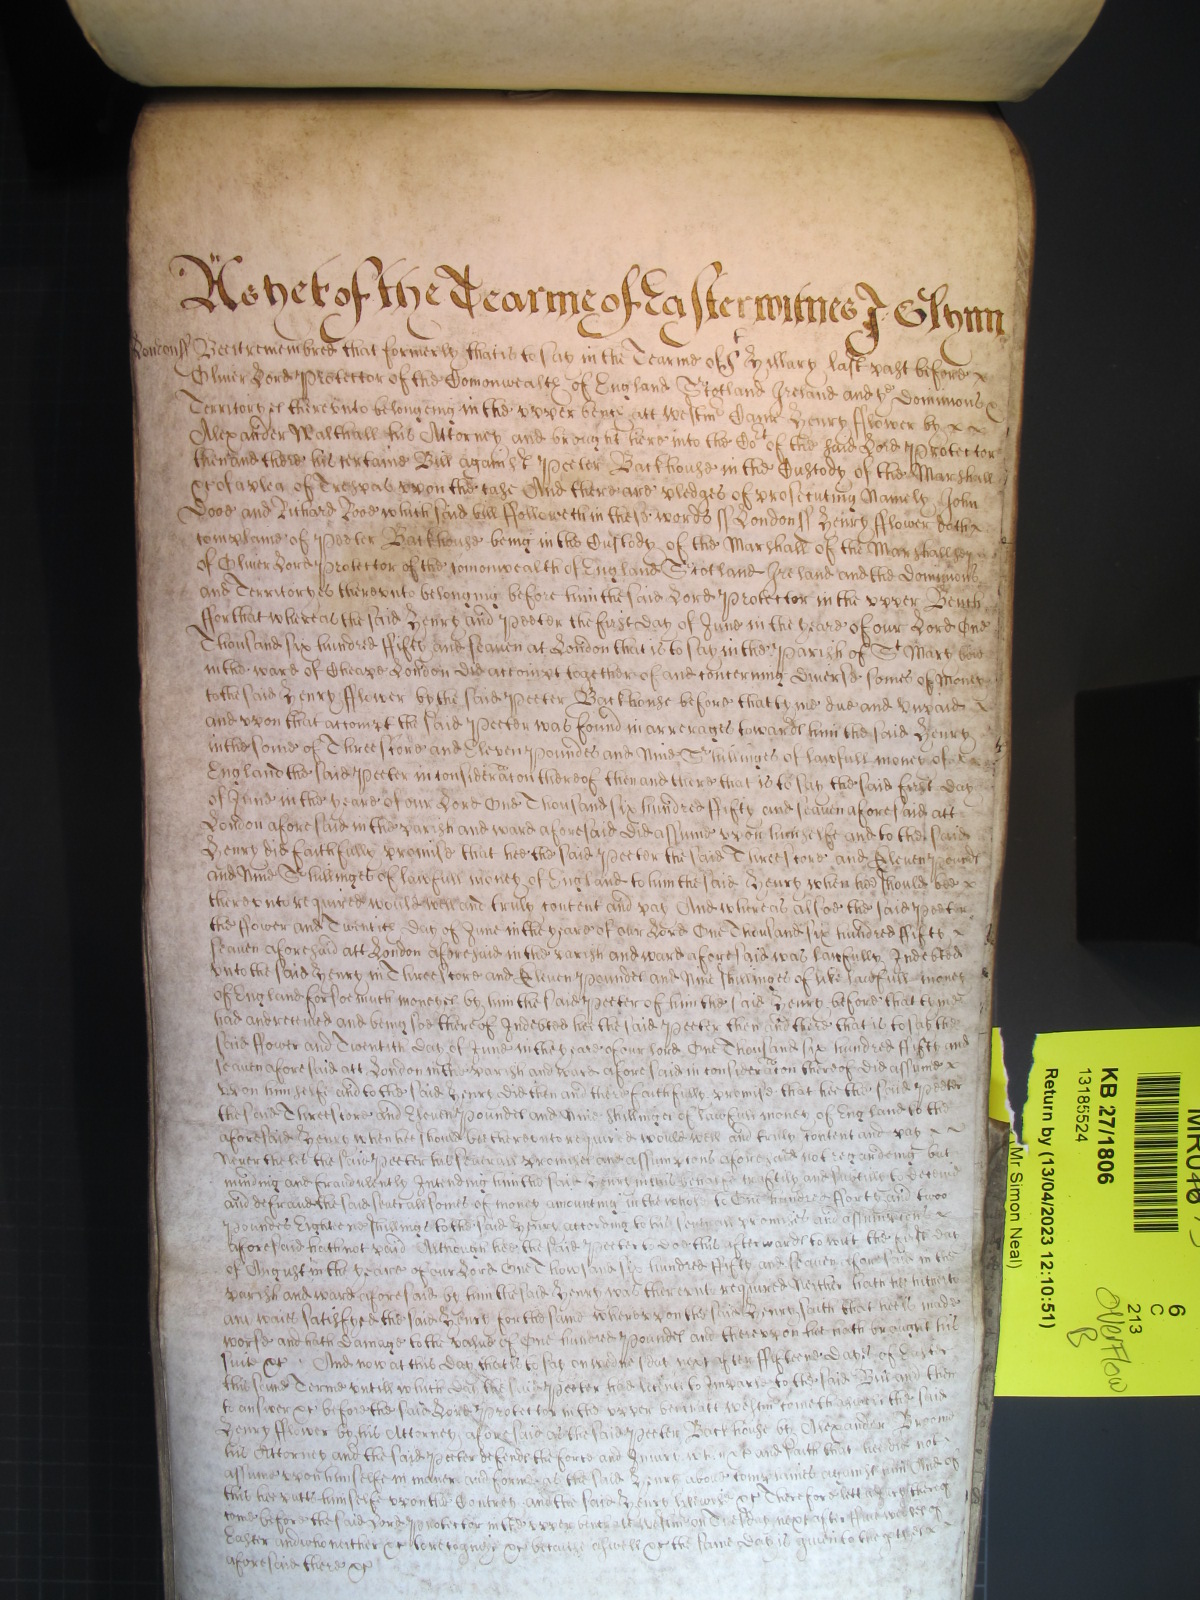 As yet of the Tearme of Easter witnes J Glynn
London ss Bee it remembred that formerly that is to say in the Tearme of St Hillary last past before
Oliver Lord Protector of the Commonwealth of England Scotland Ireland and ye Dominions
Territoryes thereunto belongeing in the upper bench att Westm Came Henry fflower by
Alexander Walthall his Attorney and brought here into the Cort of the said Lord Protector
then and there his certaine Bill against Peeter Backhouse in the Custody of the Marshall
&c of a plea of Trespas upon the case And there are pledges of prosecuting Namely John
Dooe and Richard Rooe which said bill ffolloweth in theis words ss London ss Henry fflower doth
complaine of Peeter Backhouse being in the Custody of the Marshall of the Marshallsey
of Oliver Lord Protector of the comonwealth of England Scotland Ireland and the Dominions
and Territoryes thereunto belonging before him the said Lord Protector in the upper Bench
ffor that whereas the said Henry and Peeter the first day of June in the yeare of our Lord One
Thousand six hundred ffifty and seaven at London that is to say in the Parish of St Mary bow
in the ward of Cheape London did accompt together of and concerning diverse somes of Money
to the said Henry fflower by the said Peeter Backhouse before that tyme due and unpaid
and upon that accompt the said Peeter was found in arrerages towards him the said Henry
in the some of Three score and Eleven Poundes and Nine Shillinges of lawfull money of
England the said Peeter in consideracon thereof then and there that is to say the said first day
of June in the yeare of our Lord One Thousand six hundred ffifty and seaven aforesaid att
London aforesaid in the parish and ward aforesaid did assume upon himselfe and to the said
Henry did faithfully promise that hee the said Peeter the said Three score and Eleven Poundes
and Nine Shillinges of lawfull money of England to him the said Henry when hee should bee
thereunto required would well and truly content and pay And whereas alsoe the said Peeter
the ffower and Twentith day of June in the yeare of our Lord One Thousand six hundred ffifty
seaven aforesaid att London aforesaid in the parish and ward aforesaid was lawfully Indebted
unto the said Henry in Three score and Eleven Poundes and Nine shillinges of like lawfull money
of England for soe much moneyes by him the said Peeter of him the said Henry before that tyme
had and received and being soe thereof Indebted hee the said Peeter then and there that is to say the
said ffower and Twentith day of June in the yeare of our lord One Thousand six hundred ffifty and
seaven aforesaid att London in the parish and ward aforesaid in consideracon thereof did assume
upon himselfe and to the said Henry did then and there faithfully promise that hee the said Peeter
the said Three score and Eleven Poundes and Nine shillinges of lawfull money of England to the
aforesaid Henry when hee should bee thereunto required would well and truly content and pay
Neverthelес the said Peeter his severall promises and assumptions aforesaid not regardeing but
minding and fraudulently Intending him the said Henry in this behalfe craftily and subtilly to deceive
and defraude the said severall somes of money amounting in the whole to One hundred fforty and twoo
Poundes Eighteene shillings to the said Henry according to his severall promises and assumptions
aforesaid hath not paid Although hee the said Peeter to doe this afterwards to wit the first day
of August in the yeare of our Lord One Thousand six hundred ffifty and seaven aforesaid in the
parish and ward aforesaid by him the said Henry was thereunto required Neither hath hee hitherto
any waies satisfyed the said Henry for the same whereupon the said Henry saith that hee is made
worse and hath damage to the value of One hundred Poundes and thereupon hee hath brought his
suite &c And now at this day that is to say on wednesday next after ffifteene dayes of Easter
this same Terme untill which day the said Peeter had licence to Imparle to the said Bill and then
to answer &c before the said Lord Protector in the upper bench att Westm come the said
Henry fflower by his Attorney aforesaid as the said Peeter Backhouse by Alexander Broome
his Attorney and the said Peeter defends the force and Injury when &c and saith that hee did not
assume upon himselfe in maner and forme as the said Henry above complaines against him And of
this hee putts himselfe upon the Contrey and the said Henry likewise &c Therefore lett a Jury thereof
come before the said Lord Protector in the upper bench att Westm on Tuesday next after ffive weekes of
Easter and who neither &c to recognize &c because aswell &c the same day is given to the partyes
aforesaid there &c
KB 27/1806
13185524
Return by (13/04/2023 12:10:51)
(Mr Simon Neal)
6
C
213
Overflow
B